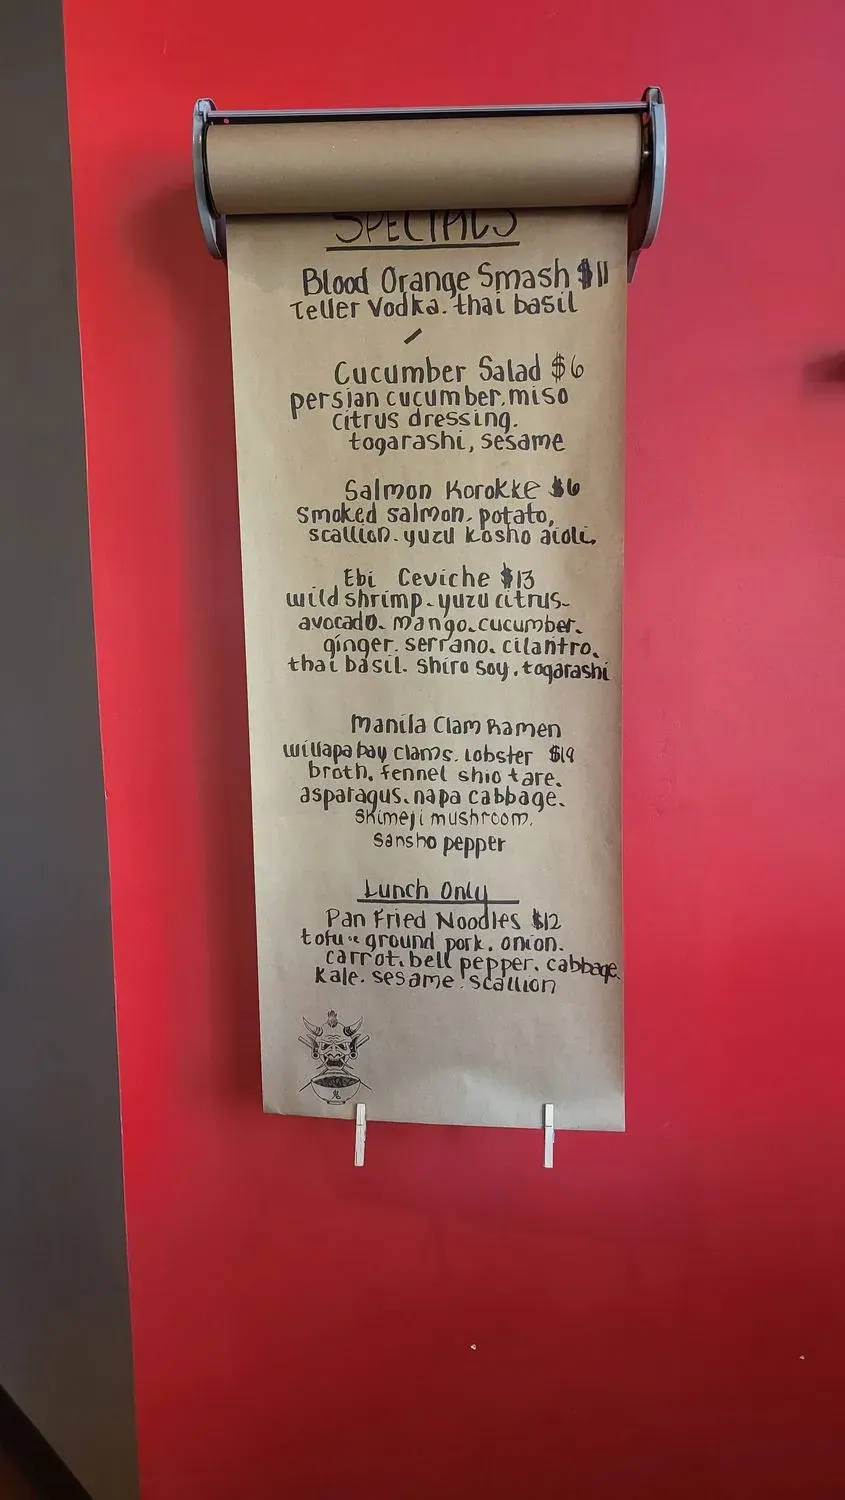 SPECIALS
Blood Orange Smash $11
Teller Vodka. thai basil
Cucumber Salad $6
persian cucumber. miso
citrus dressing.
togarashi, sesame
Salmon Korokke $6
smoked salmon. potato,
scallion. yuzu kosho aioli.
Ebi Ceviche $13
wild shrimp. yuzu citrus.
avocado. mango. cucumber.
ginger. serrano. cilantro.
thai basil. shiro soy. togarashi
Manila Clam Ramen
willapa bay clams. lobster $19
broth. fennel shio tare.
asparagus. napa cabbage.
shimeji mushroom.
sansho pepper
Lunch Only
Pan Fried Noodles $12
tofu or ground pork. onion.
carrot. bell pepper. cabbage
kale. sesame. scallion
鬼